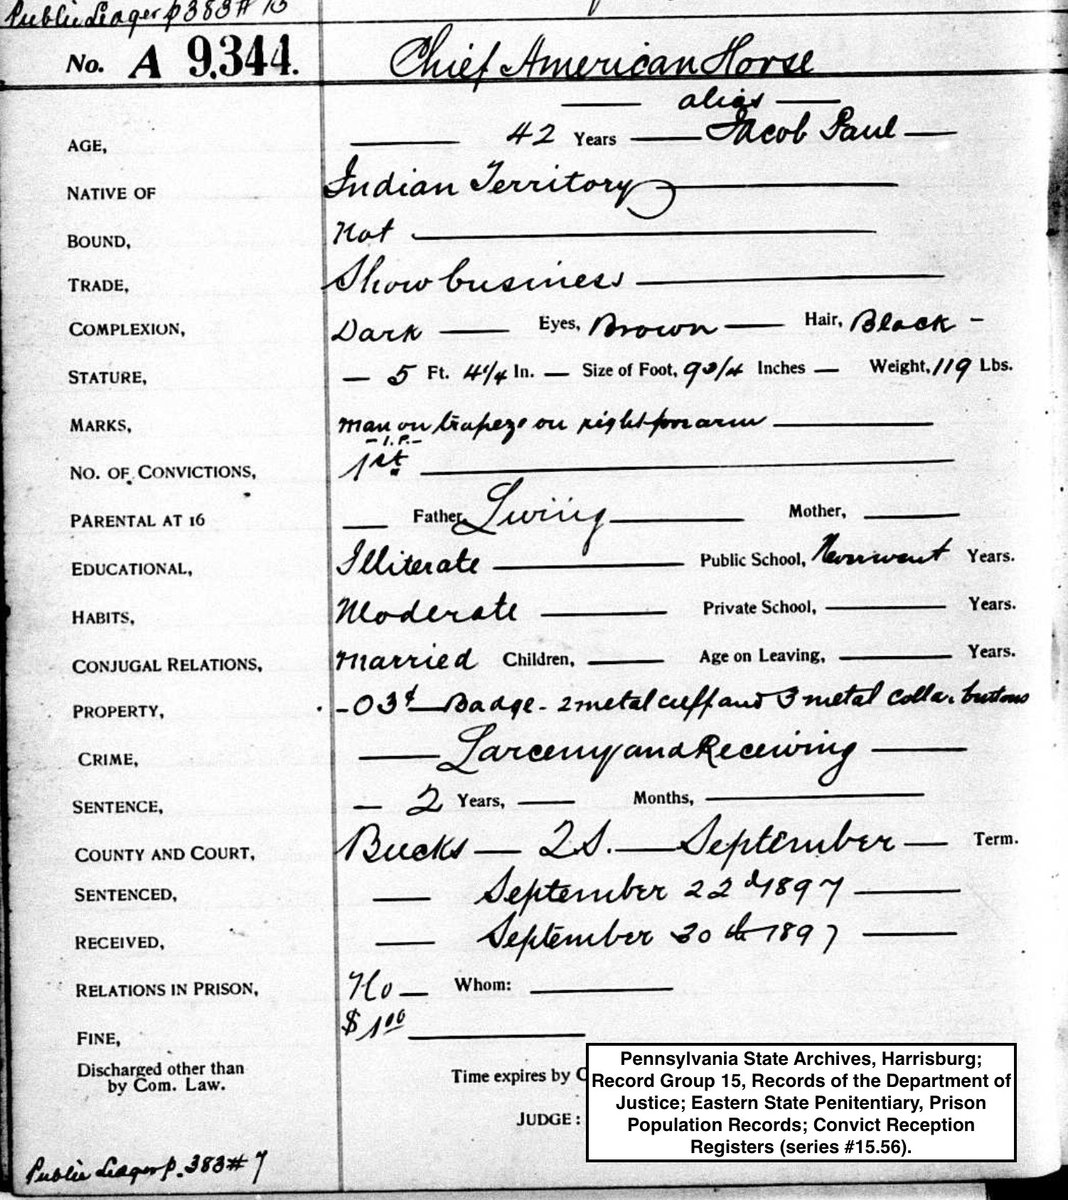 Public Ledger p 383 # 13
No. A 9,344. Chief American Horse
alias
AGE, 42 Years Jacob Paul
NATIVE OF Indian Territory
BOUND, Not
TRADE, Show business
COMPLEXION, Dark Eyes, Brown Hair, Black
STATURE, 5 Ft. 4 1/4 In. Size of Foot, 9 3/4 Inches Weight, 119 Lbs.
MARKS, man on trapeze on right forearm
- I.P. -
NO. OF CONVICTIONS, 1st
PARENTAL AT 16 Father, Living Mother,
EDUCATIONAL, Illiterate Public School, Never went Years.
HABITS, Moderate Private School, Years.
CONJUGAL RELATIONS, Married Children, Age on Leaving, Years.
PROPERTY, Badge - 2 metal cuff and 3 metal collar buttons
CRIME, Larceny and Receiving
SENTENCE, 2 Years, Months,
COUNTY AND COURT, Bucks - 2S. - September Term.
SENTENCED, September 22d 1897
RECEIVED, September 30th 1897
RELATIONS IN PRISON, No Whom:
FINE, $1.00
Discharged other than
by Com. Law.
Time expires by
JUDGE:
Pennsylvania State Archives, Harrisburg;
Record Group 15, Records of the Department of
Justice; Eastern State Penitentiary, Prison
Population Records; Convict Reception
Registers (series #15.56).
Public Ledger p. 383 # 7